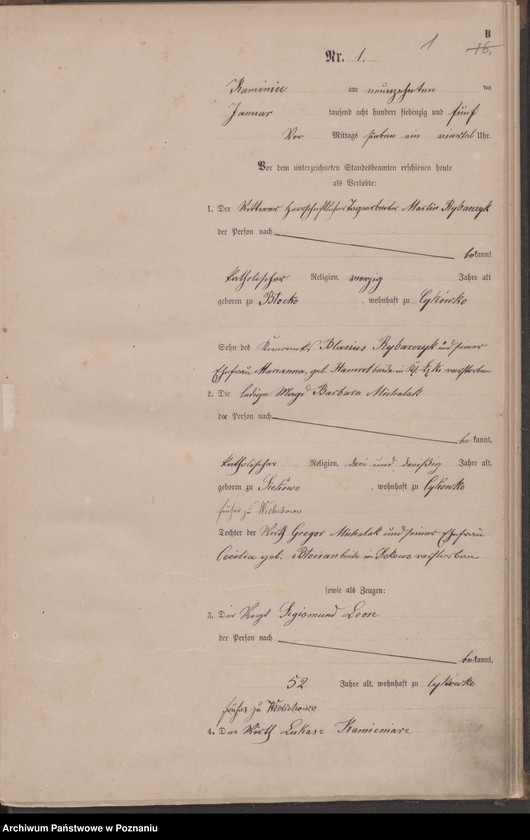 B
1 16.
Nr. 1.
Kaminiec am neunzehnten
Januar tausend acht hundert siebenzig und fünf
Vor Mittags sieben ein viertel Uhr.
Vor dem unterzeichneten Standesbeamten erschienen heute
als Verlobte:
1. Der Wittwer herrschaftlicher Tagearbeiter Martin Rybarczyk
der Person nach
bekannt
katholischer Religion, vierzig Jahre alt
geboren zu , wohnhaft zu Cykówko
Sohn des Blasius Rybarczyk und seiner
Ehefrau Marianna, geb. beide in verstorben
2. Die ledige Magd Barbara Michalak
der Person nach
bekannt,
katholischer Religion, drei und dreißig Jahre alt,
geboren zu Sekowo , wohnhaft zu Cykowko
früher zu
Tochter der Wirth Gregor Michalak und seiner Ehefrau
Cecilia geb. beide in Sekowo verstorben
sowie als Zeugen:
3. Der Voigt Sigismund Leon
der Person nach
bekannt,
52 Jahre alt, wohnhaft zu Cykowko
früher zu Wielichowo
4. Der Wirth Lukasz Kamieniarz
Archiwum Państwowe w Poznaniu